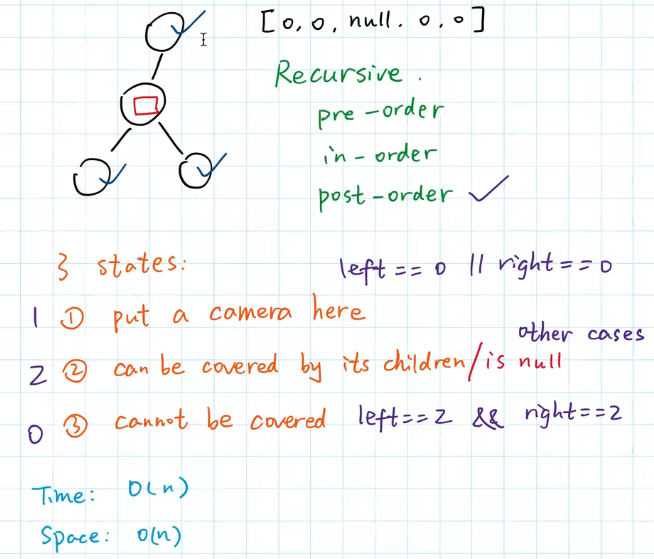 [0, 0, null. 0, 0]
Recursive.
pre-order
in-order
post-order
3 states:
left == 0 || right == 0
1 ① put a camera here
other cases
2 ② can be covered by its children/is null
0 ③ cannot be covered left==2 && right==2
Time: O(n)
Space: O(n)